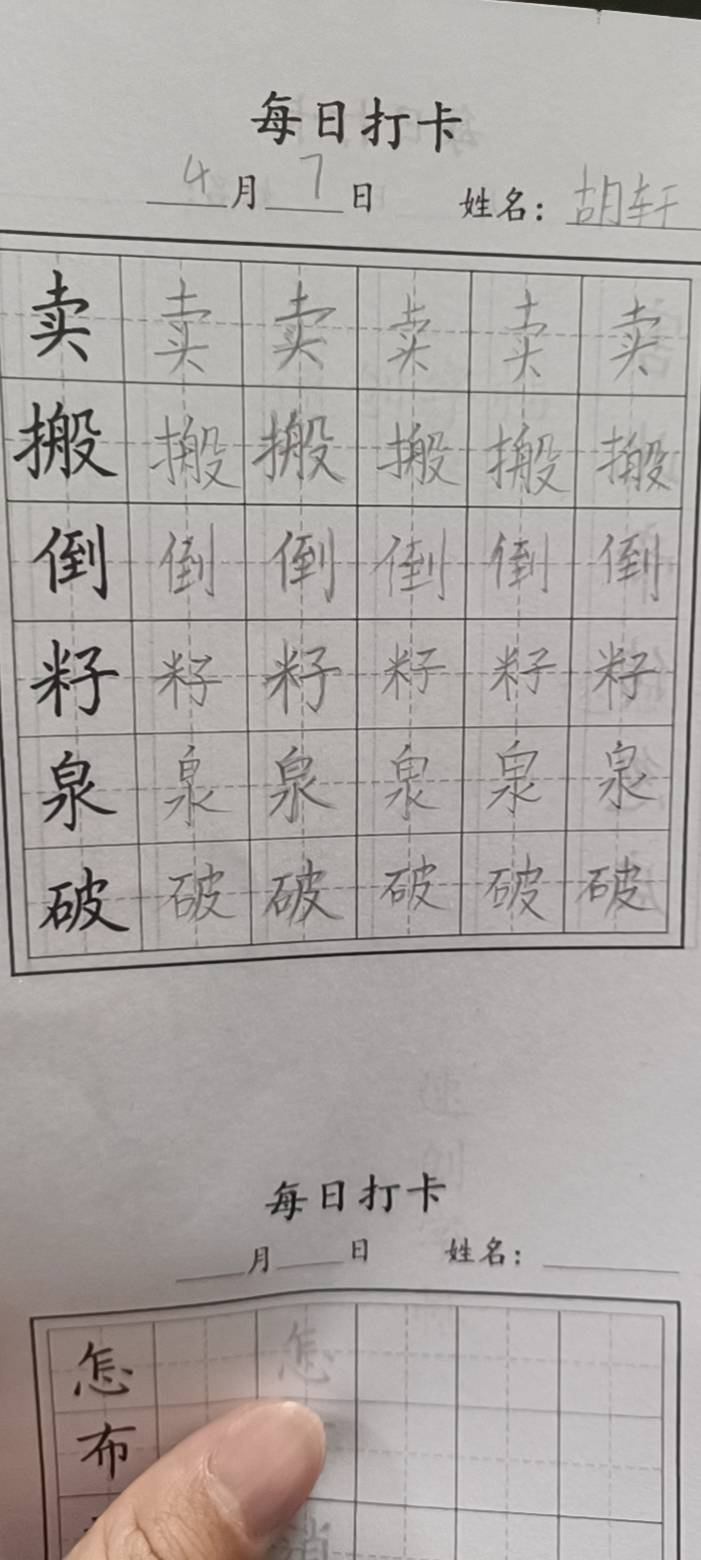 每日打卡
4月7日 姓名：胡轩
卖 卖 卖 卖 卖 卖
搬 搬 搬 搬 搬 搬
倒 倒 倒 倒 倒 倒
籽 籽 籽 籽 籽 籽
泉 泉 泉 泉 泉 泉
破 破 破 破 破 破
每日打卡
月 日 姓名：
怎 怎
布